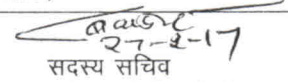 27-2-17
सदस्य सचिव